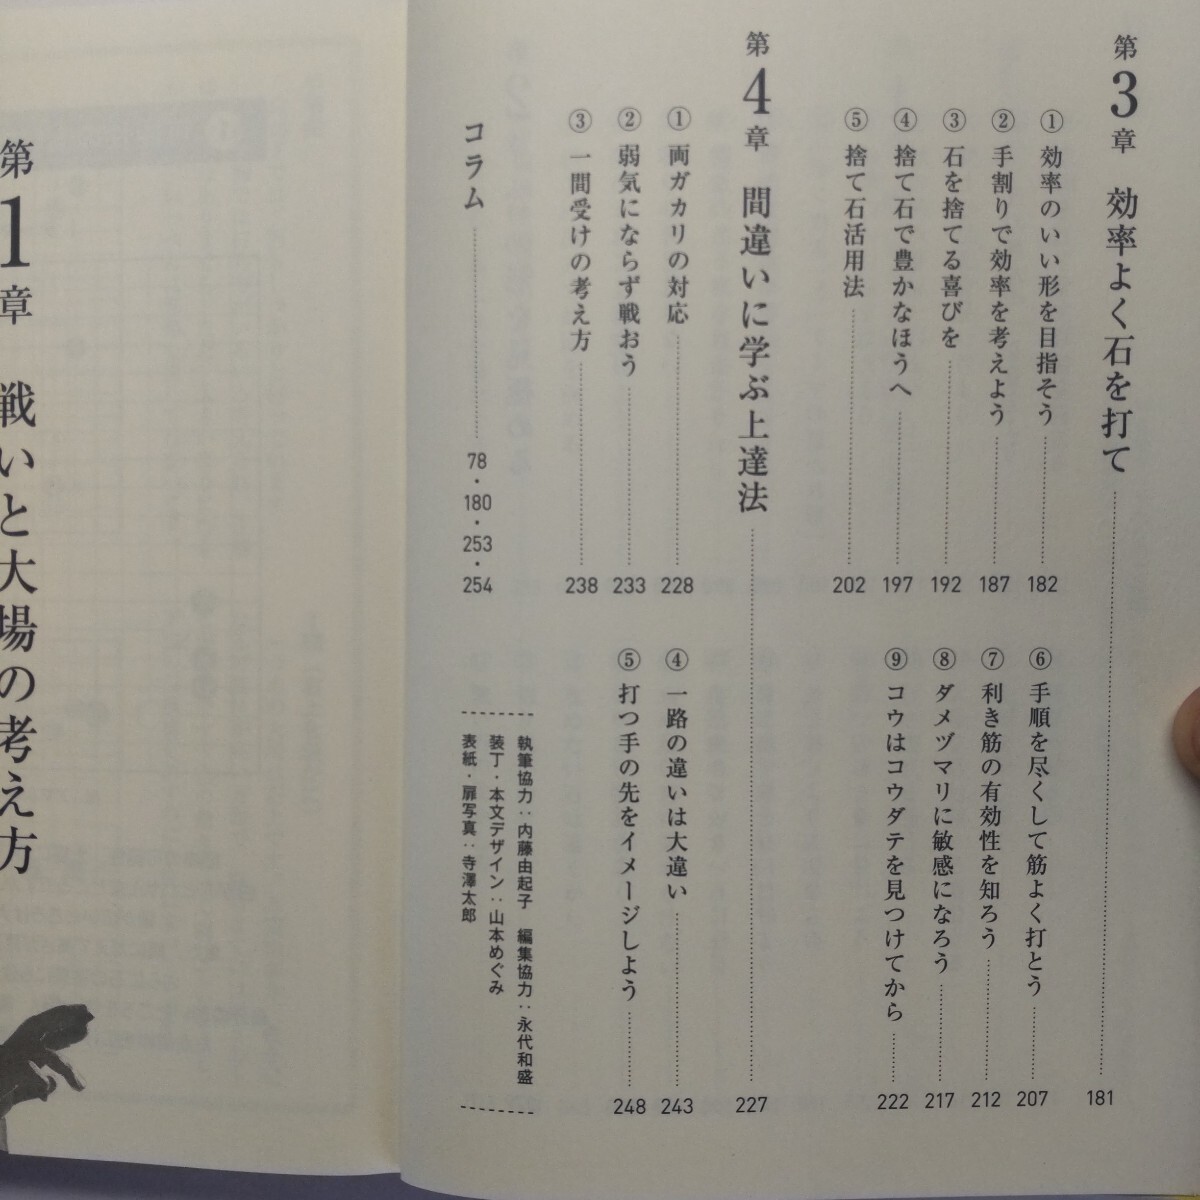 第3章 効率よく石を打て 181
① 効率のいい形を目指そう 182
② 手割りで効率を考えよう 187
③ 石を捨てる喜びを 192
④ 捨て石で豊かなほうへ 197
⑤ 捨て石活用法 202
⑥ 手順を尽くして筋よく打とう 207
⑦ 利き筋の有効性を知ろう 212
⑧ ダメヅマリに敏感になろう 217
⑨ コウはコウダテを見つけてから 222
第4章 間違いに学ぶ上達法 227
① 両ガカリの対応 228
② 弱気にならず戦おう 233
③ 一間受けの考え方 238
④ 一路の違いは大違い 243
⑤ 打つ手の先をイメージしよう 248
コラム 78・180・253・254
執筆協力：内藤由起子 編集協力：永代和盛
装丁・本文デザイン：山本めぐみ
表紙・扉写真：寺澤太郎
第1章 戦いと大場の考え方